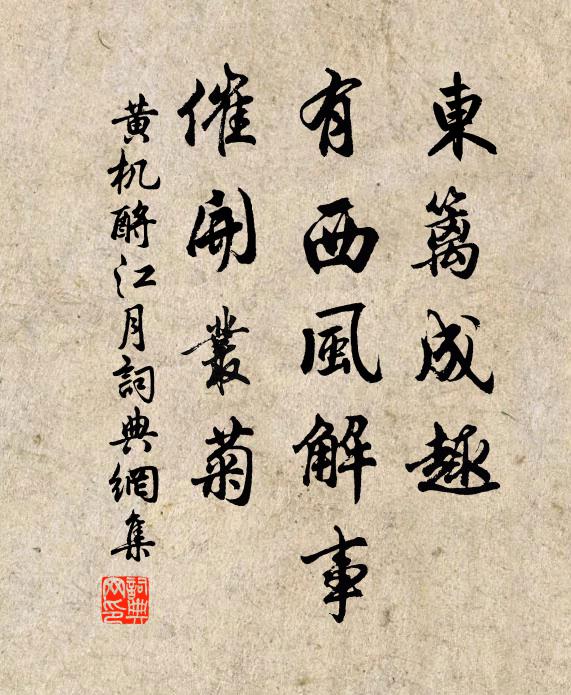 東籬成趣
有西風解事
催開叢菊
黄机酹江月詞典網集
詞典网印